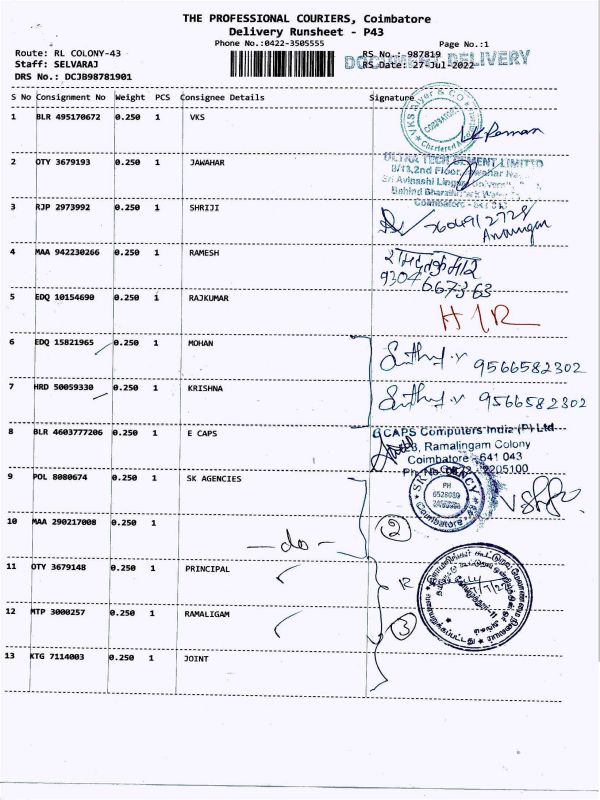 THE PROFESSIONAL COURIERS, Coimbatore
Delivery Runsheet - P43
Phone No.:0422-3505555
Page No.:1
Route: RL COLONY-43
RS No.: 987819
DOCUMENT DELIVERY
Staff: SELVARAJ
RS Date: 27-Jul-2022
DRS No.: DCJB98781901
S No Consignment No Weight PCS Consignee Details Signature
1 BLR 495170672 0.250 1 VKS
VKS Aiyer & CO
COIMBATORE
Chartered
VK Raman
2 OTY 3679193 0.250 1 JAWAHAR
ULTRA TECH CEMENT LIMITED
8/13,2nd Floor, Jawahar
Sri Avinashi Lingam University
Behind Bharathi Park Water
Coimbatore - 641
3 RJP 2973992 0.250 1 SHRIJI
4 MAA 942230266 0.250 1 RAMESH
9304667363
5 EDQ 10154690 0.250 1 RAJKUMAR
6 EDQ 15821965 0.250 1 MOHAN
9566582302
7 HRD 50059330 0.250 1 KRISHNA
9566582302
8 BLR 4603777206 0.250 1 E CAPS
CAPS Computers India (P) Ltd
Ramalingam Colony
Coimbatore - 641 043
2205100
9 POL 8080674 0.250 1 SK AGENCIES
PH
6528089
Coimbatore
10 MAA 290217008 0.250 1
— do —
2
11 OTY 3679148 0.250 1 PRINCIPAL
12 MTP 3000257 0.250 1 RAMALIGAM
3
13 KTG 7114003 0.250 1 JOINT